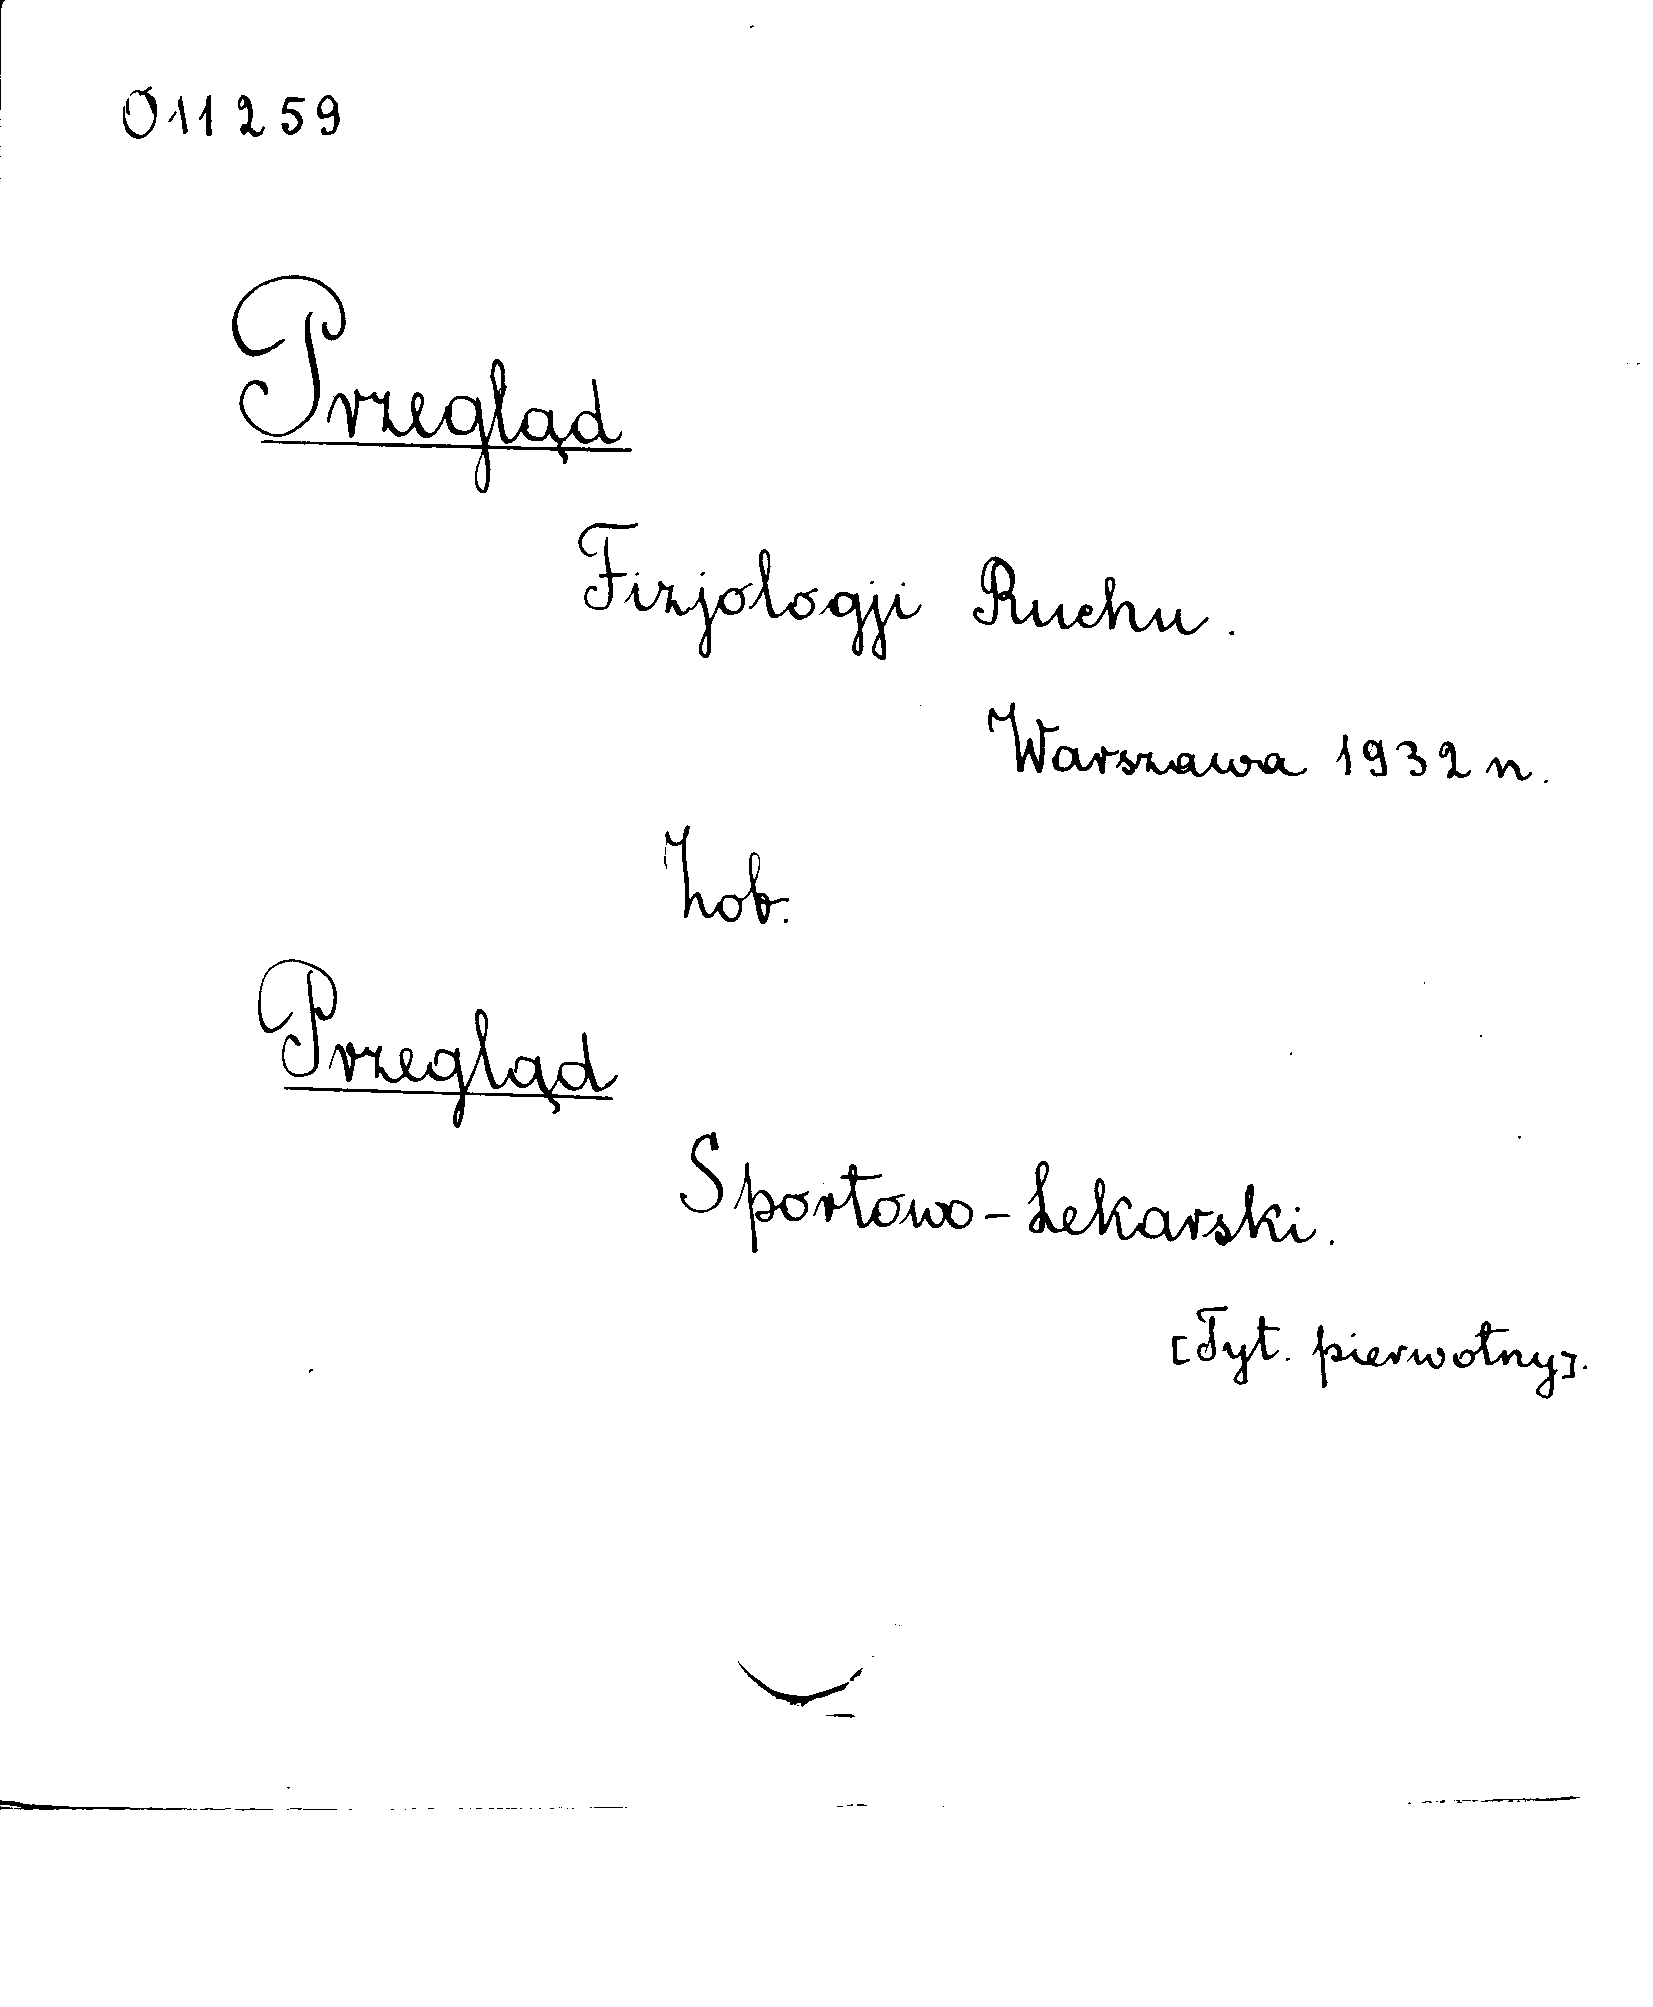 011259
Przegląd
Fizjologji Ruchu.
Warszawa 1932 n.
Zob.
Przegląd
Sportowo-Lekarski.
[Tyt. pierwotny].